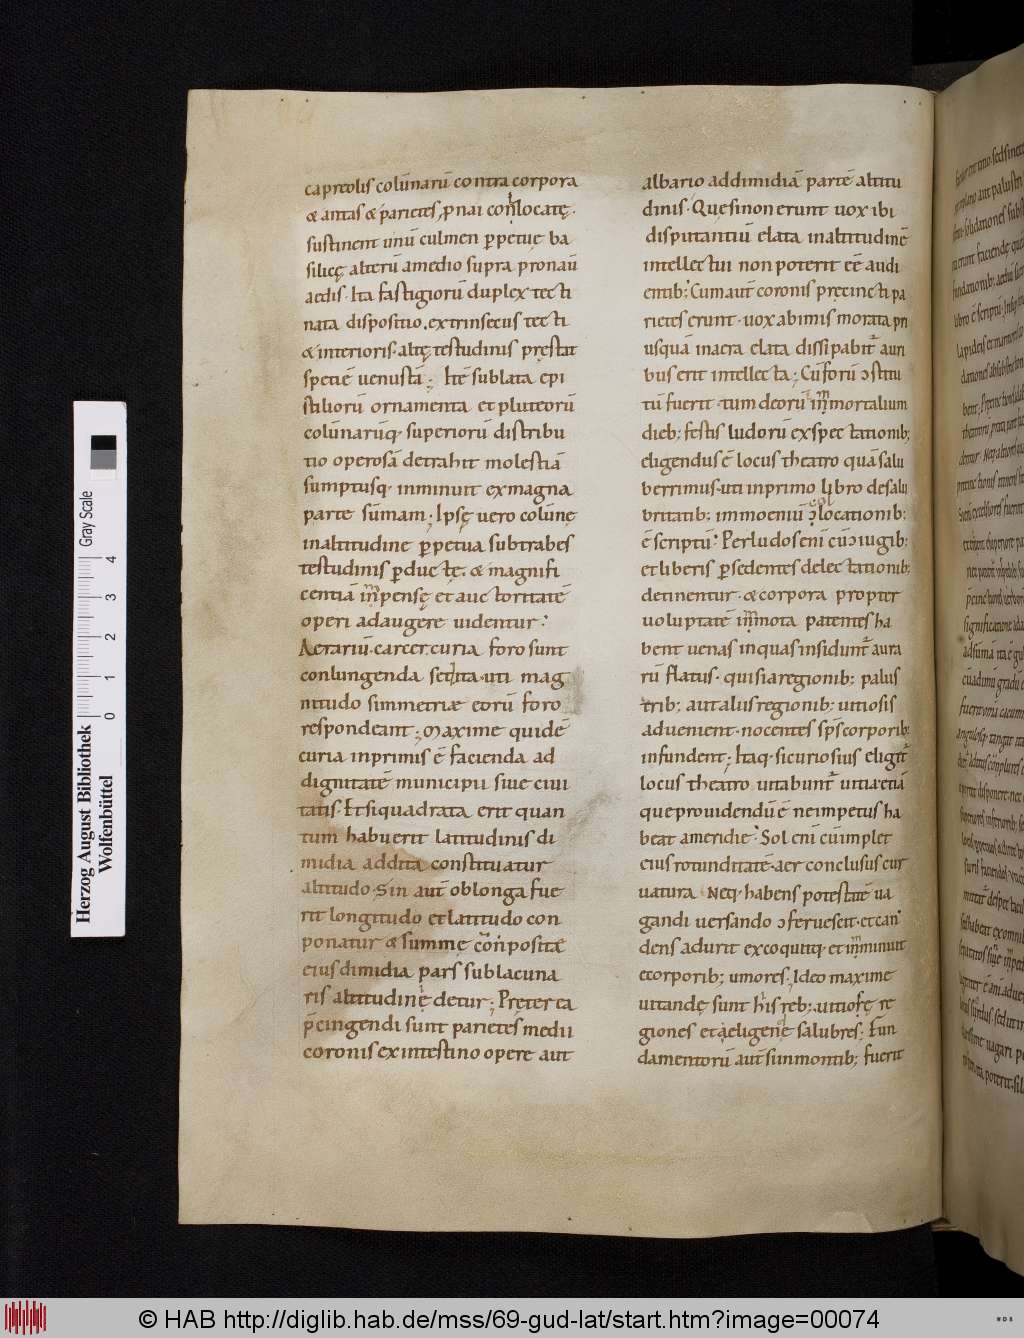 capreolis colūnarū contra corpora
& antas & parietes, p̱nai conlocatę.
sustinent unū culmen ꝑpetuę ba
silicę alterū amedio supra pronaū
aedis. Ita fastigiorū duplex tecti
nata dispositio, extrinsecus tecti
& interioris altę testudinis pręstat
spetiē uenustā; Itē sublata epi
stiliorū ornamenta et pluteorū
colūnarūq. superiorū distribu
tio operosā detrahit molestiā
sumptusq. inminuit exmagna
parte sūmam; Ipsę uero colūnę
inaltitudine ꝑpetua subtrabes
testudinis ꝑductę, & magnifi
centiā inpensę et auctoritatē
operi adaugere uidentur;
Aerariū. carcer. curia foro sunt
coniungenda sed ita. uti mag
nitudo simmetriæ eorū foro
respondeant; Maxime quidē
curia inprimis ē facienda ad
dignitatē municipii siue ciui
tatis. Et siquadrata erit quan
tum habuerit latitudinis di
midia addita constituatur
altitudo. Sin autē oblonga fue
rit longitudo et latitudo con
ponatur & summę conpositę
eius dimidia pars sublacuna
ris altitudinę detur; Pręterea
p̄cingendi sunt parietes medii
coronis exintestino opere aut
albario addimidiā partē altitu
dinis. Que sinon erunt uox ibi
disputantiū elata inaltitudinē
intellectui non poterit eē audi
entib; Cum aut̄ coronis precincti pa
rietes erunt. uox abimis morata pri
usquā inaera elata dissipabit̄ auri
bus erit intellecta; Cū forū ɔstitu
tū fuerit. tum deorū inmortalium
dieb; festis ludorū exspectationib;
eligendus ē locus theatro quā salu
berrimus. uti inprimo libro desalu
britatib; inmoeniū ɔlocationib;
ē scriptū; Per ludos enī cū ɔiugib;
et liberis ꝑsedentes delectationib;
detinentur. & corpora propter
uoluptatē inmota patentes ha
bent uenas inquas insidunt̄ aura
rū flatus. qui siaregionib; palus
trib; aut aliis regionib; uitiosis
aduenient. nocentes sp̄s corporib;
infundent; Itaq. sicuriosius eligit̄
locus theatro uitabunt̄ uitia etiā
que prouidendū ē neimpetus ha
beat ameridie. Sol enī cū implet
eius rotunditatē. aer conclusus cur
uatura Neq. habens potestatē ua
gandi uersando ɔferuescit. et can
dens adurit excoquitq. et inminuit
ecorporib; umores; Ideo maxime
uitandę sunt his reb; uitiosę re
giones et eligenę salubres; Fun
damentorū aut̄ si inmontib; fuerit
Herzog August Bibliothek
Wolfenbüttel
0 1 2 3 4
Gray Scale
© HAB http://diglib.hab.de/mss/69-gud-lat/start.htm?image=00074